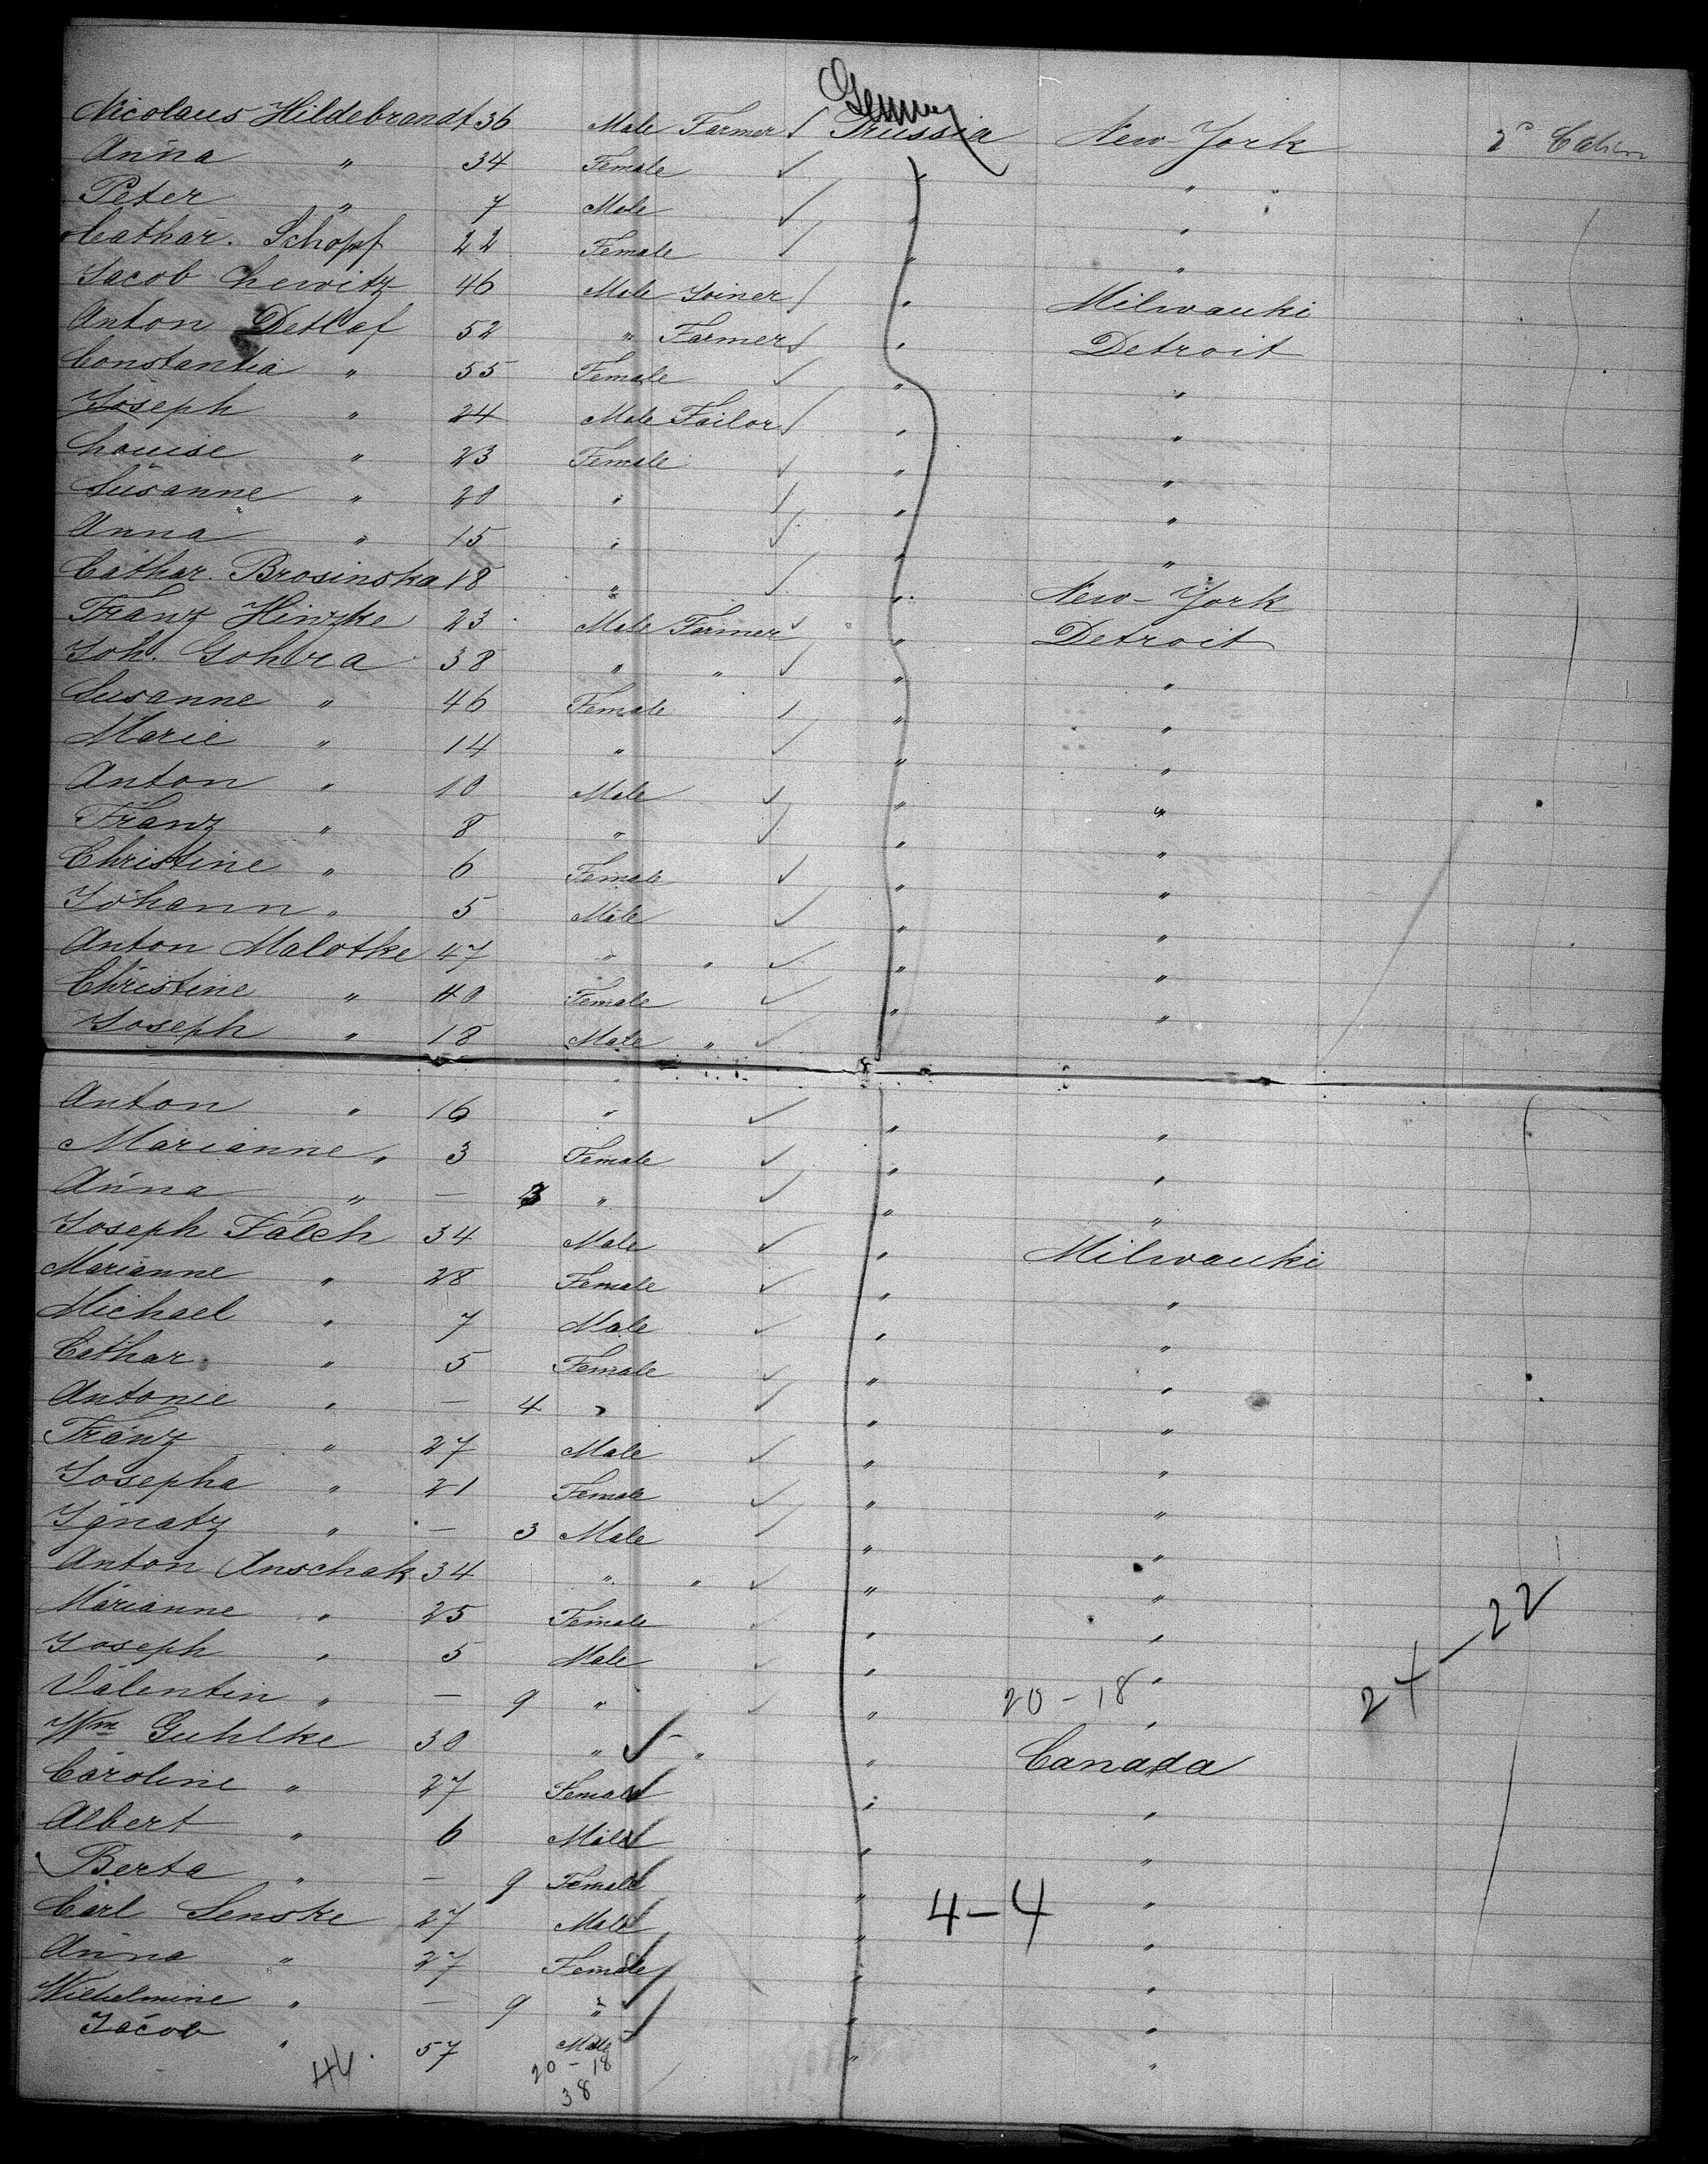 Germany
Nicolaus Hildebrandt 36 Male Farmer Prussia New-York 2d Cabin
Anna " 34 Female " "
Peter " 7 Male " "
Cathar. Schopf 22 Female " "
Jacob Lewitz 46 Male Joiner " Milwauki
Anton Detlaf 52 " Farmer " Detroit
Constantia " 55 Female " "
Joseph " 24 Male Tailor " "
Louise " 23 Female " "
Susanne " 20 " " "
Anna " 15 " " "
Cathar. Brosinska 18 " " New-York
Franz Hinzke 23 Male Farmer " Detroit
Joh. Gohra 38 " " " "
Susanne " 46 Female " "
Marie " 14 " " "
Anton " 10 Male " "
Franz " 8 " " "
Christine " 6 Female " "
Johann " 5 Male " "
Anton Malotke 47 " " " "
Christine " 40 Female " "
Joseph " 18 Male "
Anton " 16 " " "
Marianne " 3 Female " "
Anna " — 3 " " "
Joseph Falch 34 Male " Milwauki
Marianne " 28 Female " "
Michael " 7 Male " "
Cathar. " 5 Female " "
Antonie " — 4 " " "
Franz " 27 Male " "
Josepha " 21 Female " "
Ignatz " — 3 Male " "
Anton Anschak 34 " " " "
Marianne " 25 Female " "
Joseph " 5 Male " "
Valentin " — 9 " " 20-18 " 24-22
Wm Guhlke 30 " " " Canada
Caroline " 27 Female " "
Albert " 6 Male " "
Berta " — 9 Female " "
Carl Senske 27 Male " 4-4 "
Anna " 27 Female " "
Wilhelmine " — 9 " " "
Jacob " 57 Male " "
44. 20-18
38